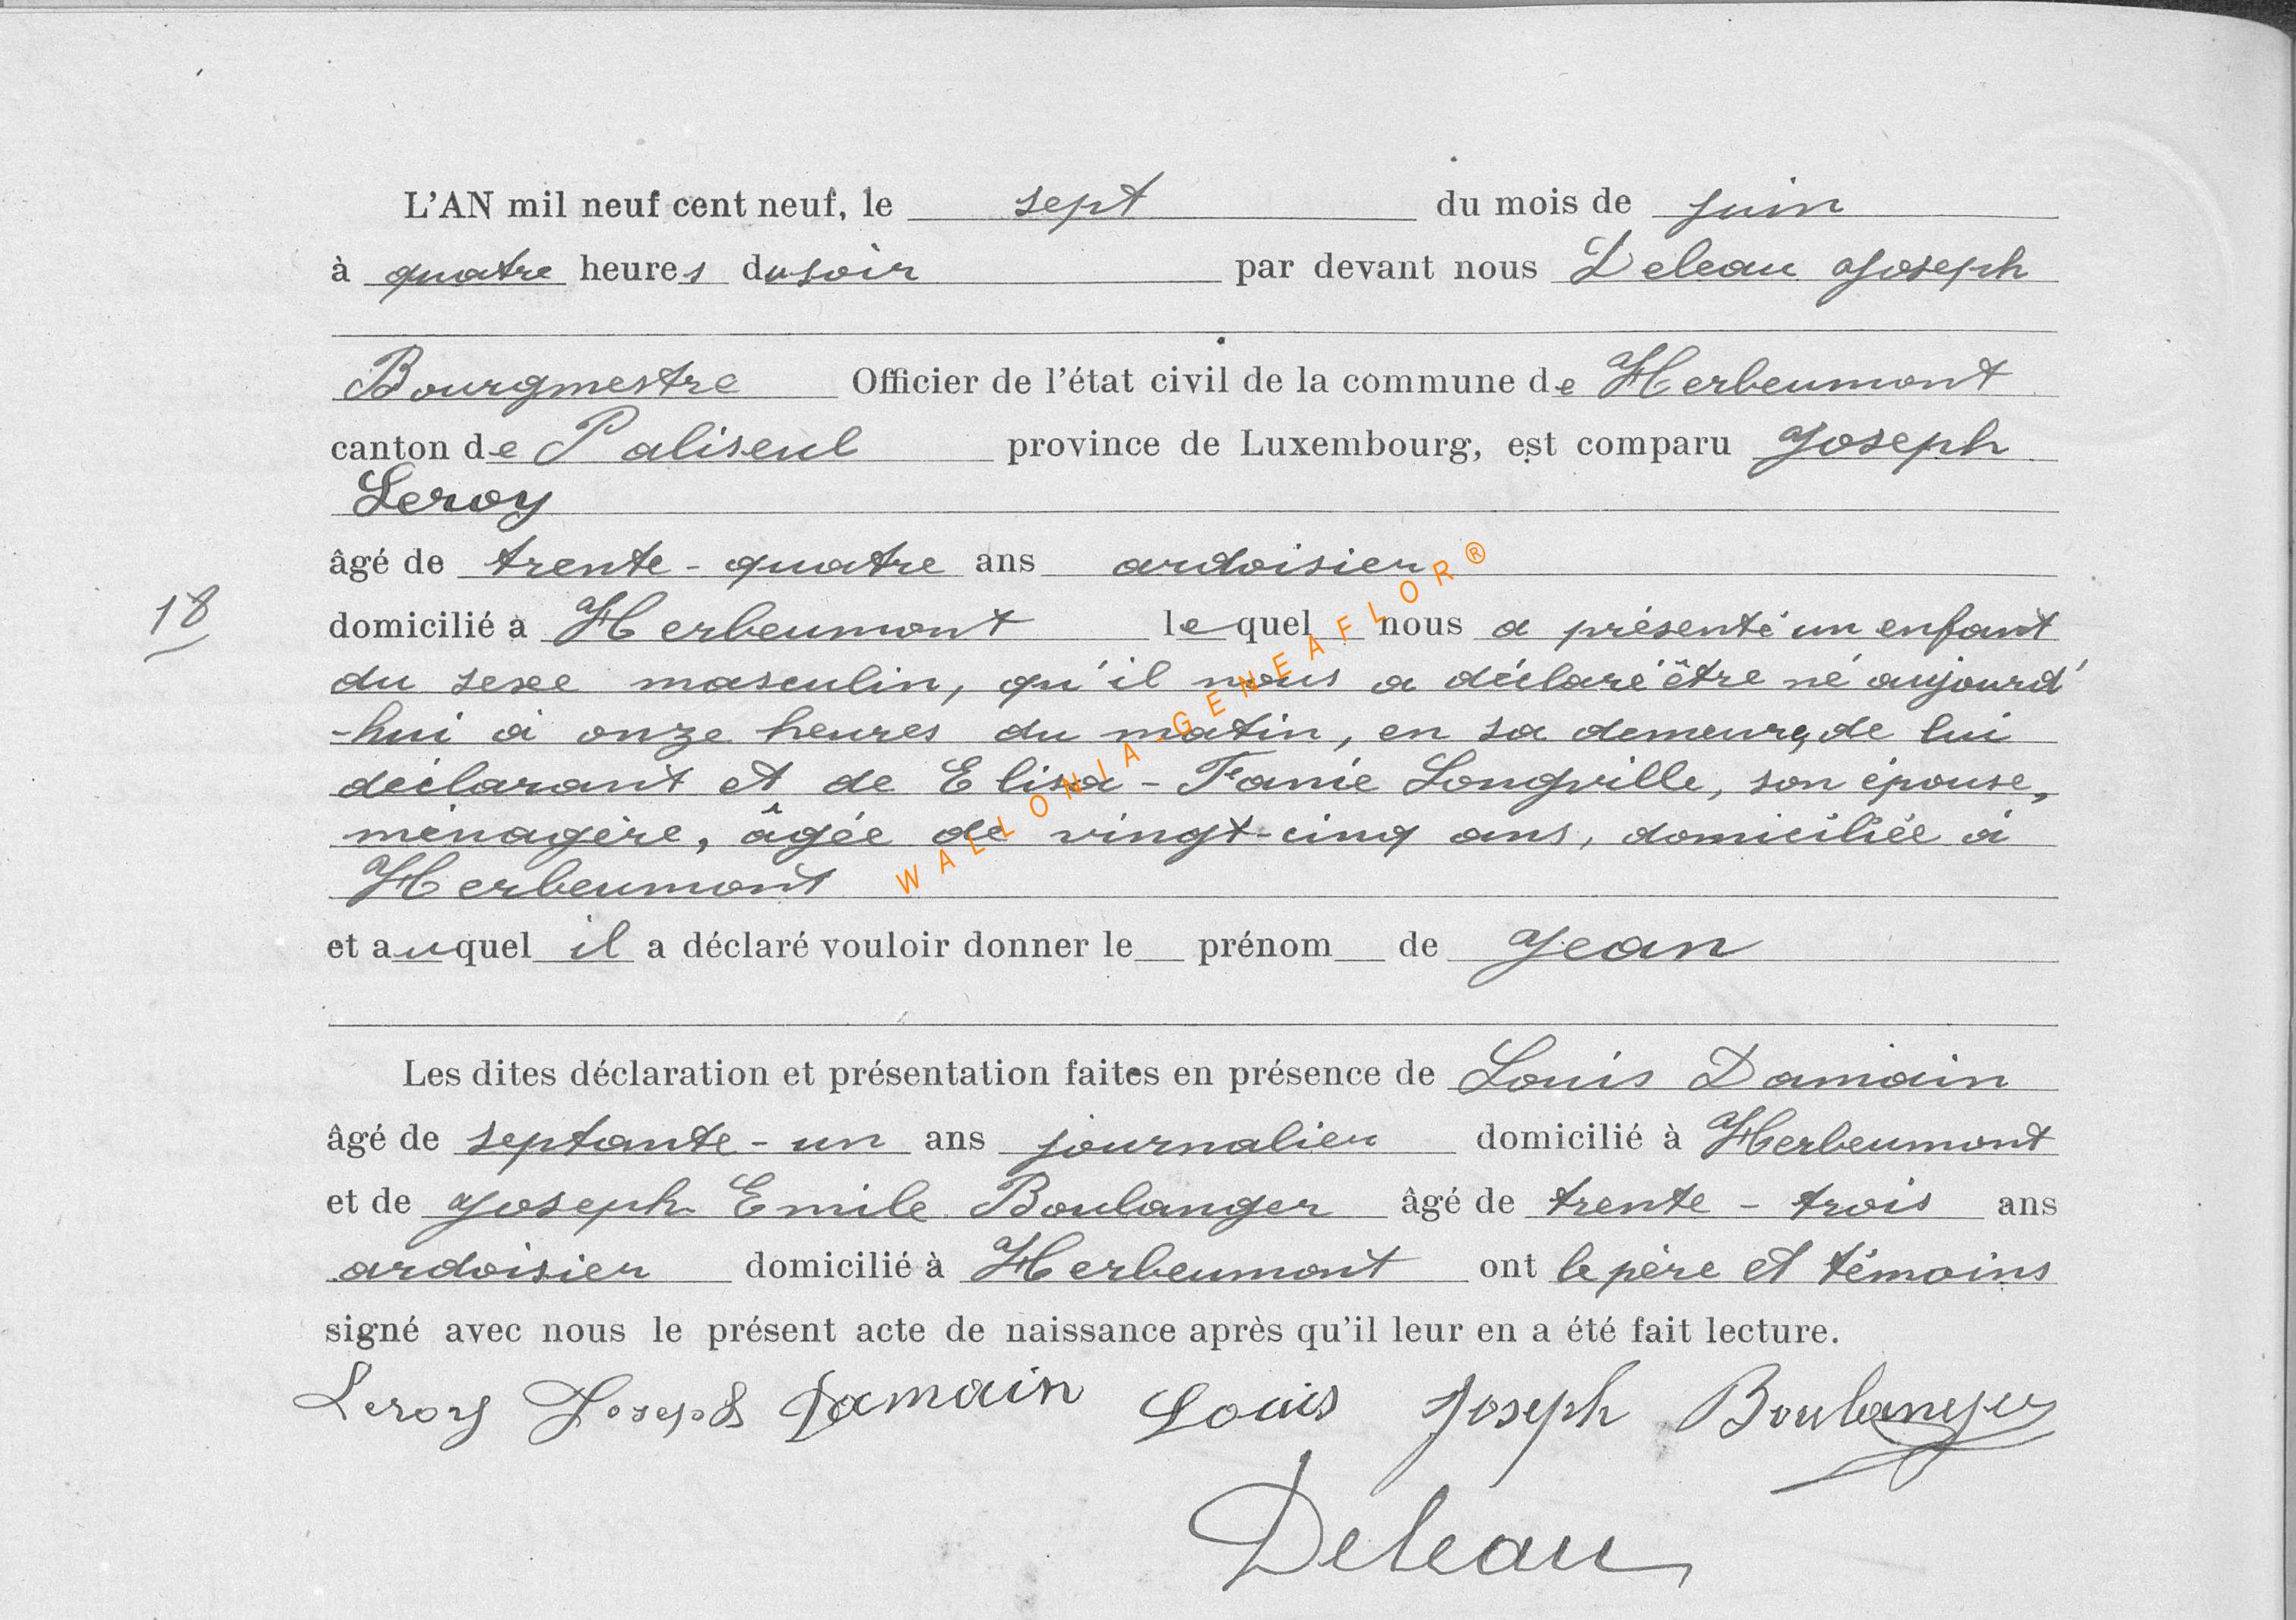 L'AN mil neuf cent neuf, le sept du mois de juin
à quatre heures du soir par devant nous Deleau Joseph
Bourgmestre Officier de l'état civil de la commune de Herbeumont
canton de Paliseul province de Luxembourg, est comparu Joseph
Leroy
âgé de trente-quatre ans ardoisier
18
domicilié à Herbeumont lequel nous a présenté un enfant
du sexe masculin, qu'il nous a déclaré être né aujourd'
-hui à onze heures du matin, en sa demeure, de lui
déclarant et de Elisa-Fanie Longville, son épouse,
ménagère, âgée de vingt-cinq ans, domiciliée à
Herbeumont
et auquel il a déclaré vouloir donner le prénom de Jean
Les dites déclaration et présentation faites en présence de Louis Damain
âgé de septante-un ans journalier domicilié à Herbeumont
et de Joseph Emile Boulanger âgé de trente-trois ans
ardoisier domicilié à Herbeumont ont le père et témoins
signé avec nous le présent acte de naissance après qu'il leur en a été fait lecture.
Leroy Joseph Damain Louis Joseph Boulanger
Deleau
WALLONIA-GENEAFLOR®